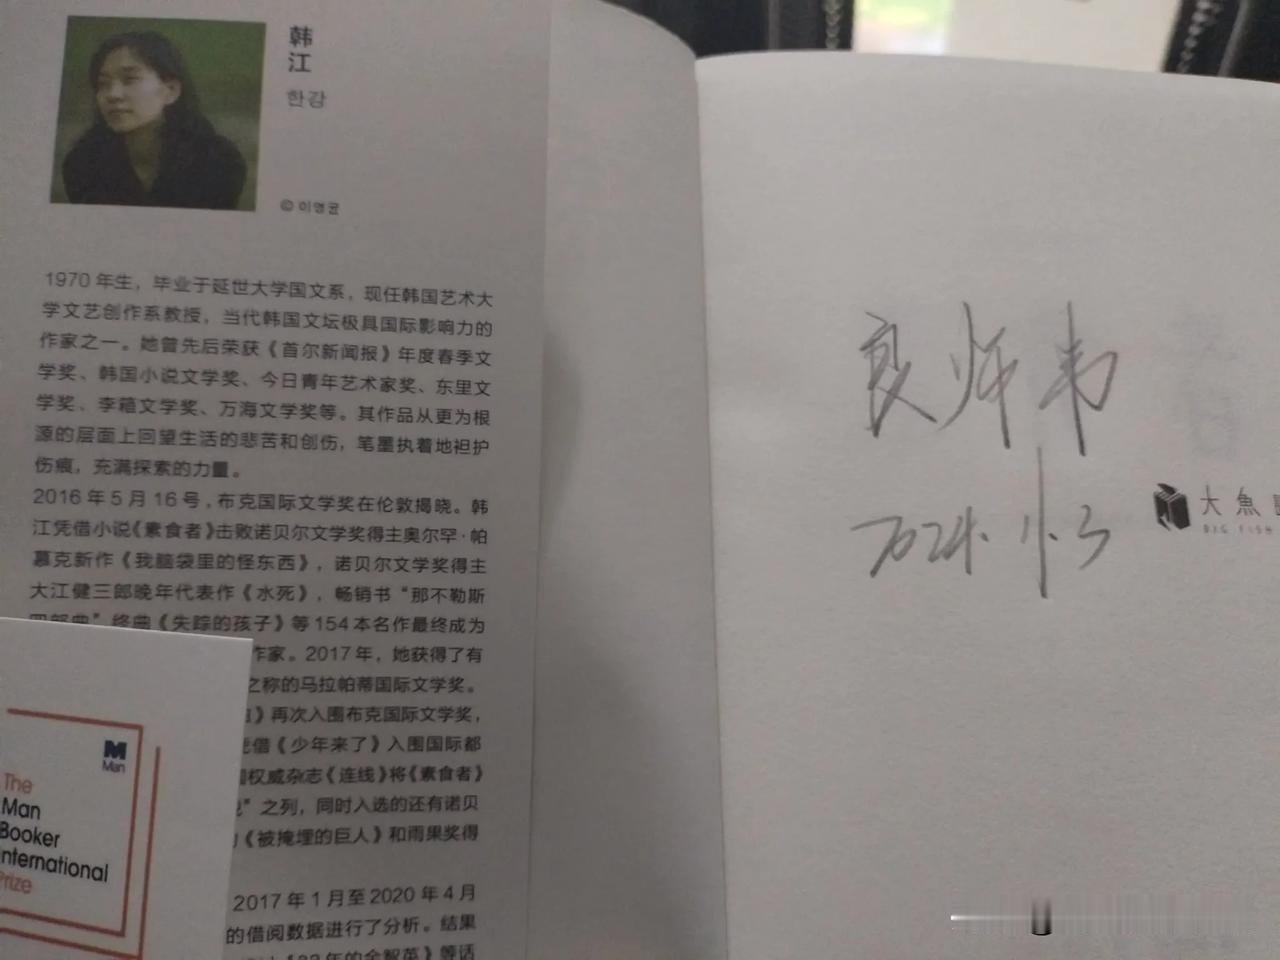 韩
江
한강
© 이영균
1970 年生，毕业于延世大学国文系，现任韩国艺术大
学文艺创作系教授，当代韩国文坛极具国际影响力的
作家之一。她曾先后荣获《首尔新闻报》年度春季文
学奖、韩国小说文学奖、今日青年艺术家奖、东里文
学奖、李箱文学奖、万海文学奖等。其作品从更为根
源的层面上回望生活的悲苦和创伤，笔墨执着地袒护
伤痕，充满探索的力量。
2016 年 5 月 16 号，布克国际文学奖在伦敦揭晓。韩
江凭借小说《素食者》击败诺贝尔文学奖得主奥尔罕·帕
慕克新作《我脑袋里的怪东西》，诺贝尔文学奖得主
大江健三郎晚年代表作《水死》，畅销书“那不勒斯
四部曲”终曲《失踪的孩子》等 154 本名作最终成为
作家。2017 年，她获得了有
之称的马拉帕蒂国际文学奖。
》再次入围布克国际文学奖，
凭借《少年来了》入围国际都
权威杂志《连线》将《素食者》
”之列，同时入选的还有诺贝
《被掩埋的巨人》和雨果奖得
2017 年 1 月至 2020 年 4 月
的借阅数据进行了分析。结果
年的金智英》等话
M
Man
The
Man
Booker
International
Prize
良师韦
大魚
BIG FISH